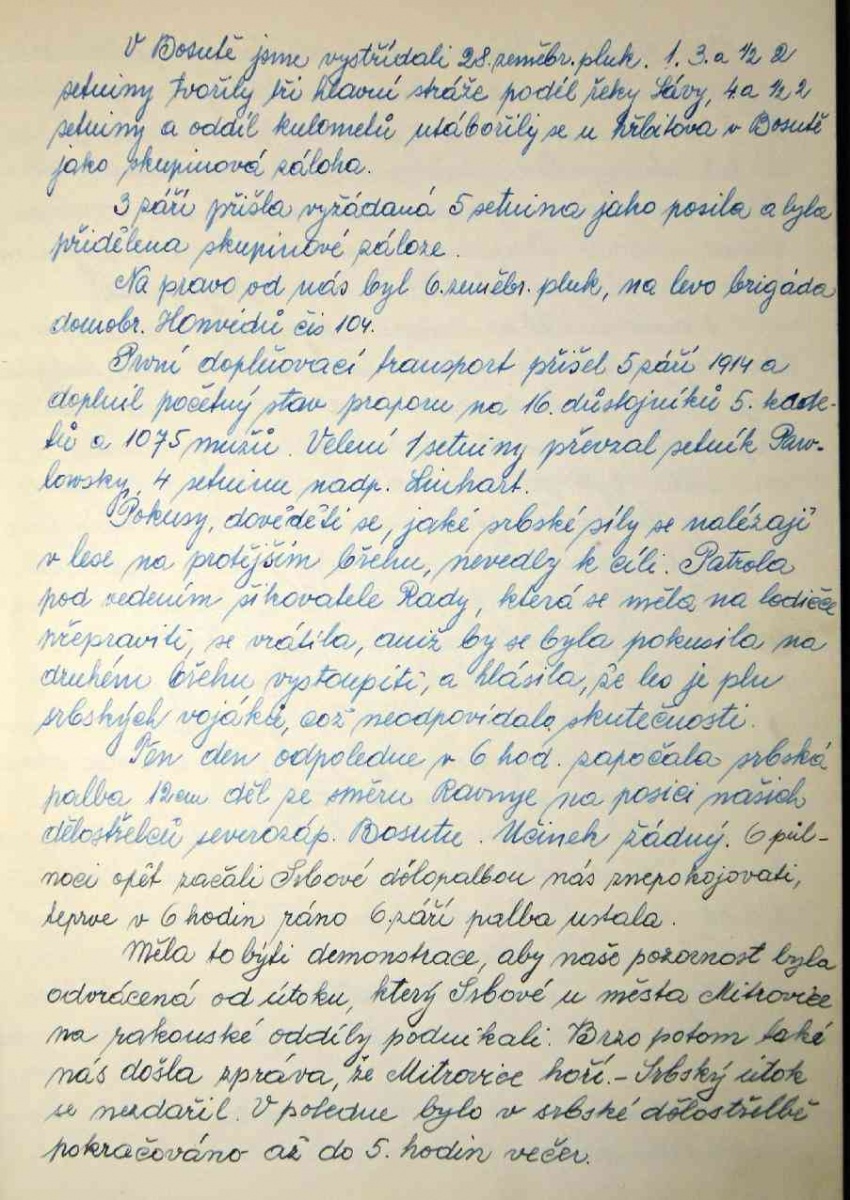 V Bosutě jsme vystřídali 28. zeměbr. pluk. 1. 3. a ½ 2
setniny tvořily tři hlavní stráže podél řeky Sávy, 4. a ½ 2
setniny a oddíl kulometů utábořily se u hřbitova v Bosutě
jako skupinová záloha.
3 září přišla vyžádaná 5 setnina jako posila a byla
přidělena skupinové záloze.
Na pravo od nás byl 6. zeměbr. pluk, na levo brigáda
domobr. Honvédů čís 104.
První doplňovací transport přišel 5 září 1914 a
doplnil početný stav praporu na 16. důstojníků 5. kade-
tů a 1075 mužů. Velení 1 setniny převzal setník Paw-
lowsky, 4 setninu nadp. Linhart.
Pokusy, dověděti se, jaké srbské síly se nalézají
v lese na protějším břehu, nevedly k cíli. Patrola
pod vedením šikovatele Rady, která se měla na lodičce
přepraviti, se vrátila, aniž by se byla pokusila na
druhém břehu vystoupiti, a hlásila, že les je pln
srbských vojáků, což neodpovídalo skutečnosti.
Ten den odpoledne v 6 hod. započala srbská
palba 12cm děl ze směru Ravnje na posici našich
dělostřelců severozáp. Bosutu. Účinek žádný. O půl-
noci opět začali Srbové dělopalbou nás znepokojovati,
teprve v 6 hodin ráno 6. září palba ustala.
Měla to býti demonstrace, aby naše pozornost byla
odvrácená od útoku, který Srbové u města Mitrovice
na rakouské oddíly podnikali. Brzo potom také
nás došla zpráva, že Mitrovice hoří. - Srbský útok
se nezdařil. V poledne bylo v srbské dělostřelbě
pokračováno až do 5. hodin večer.